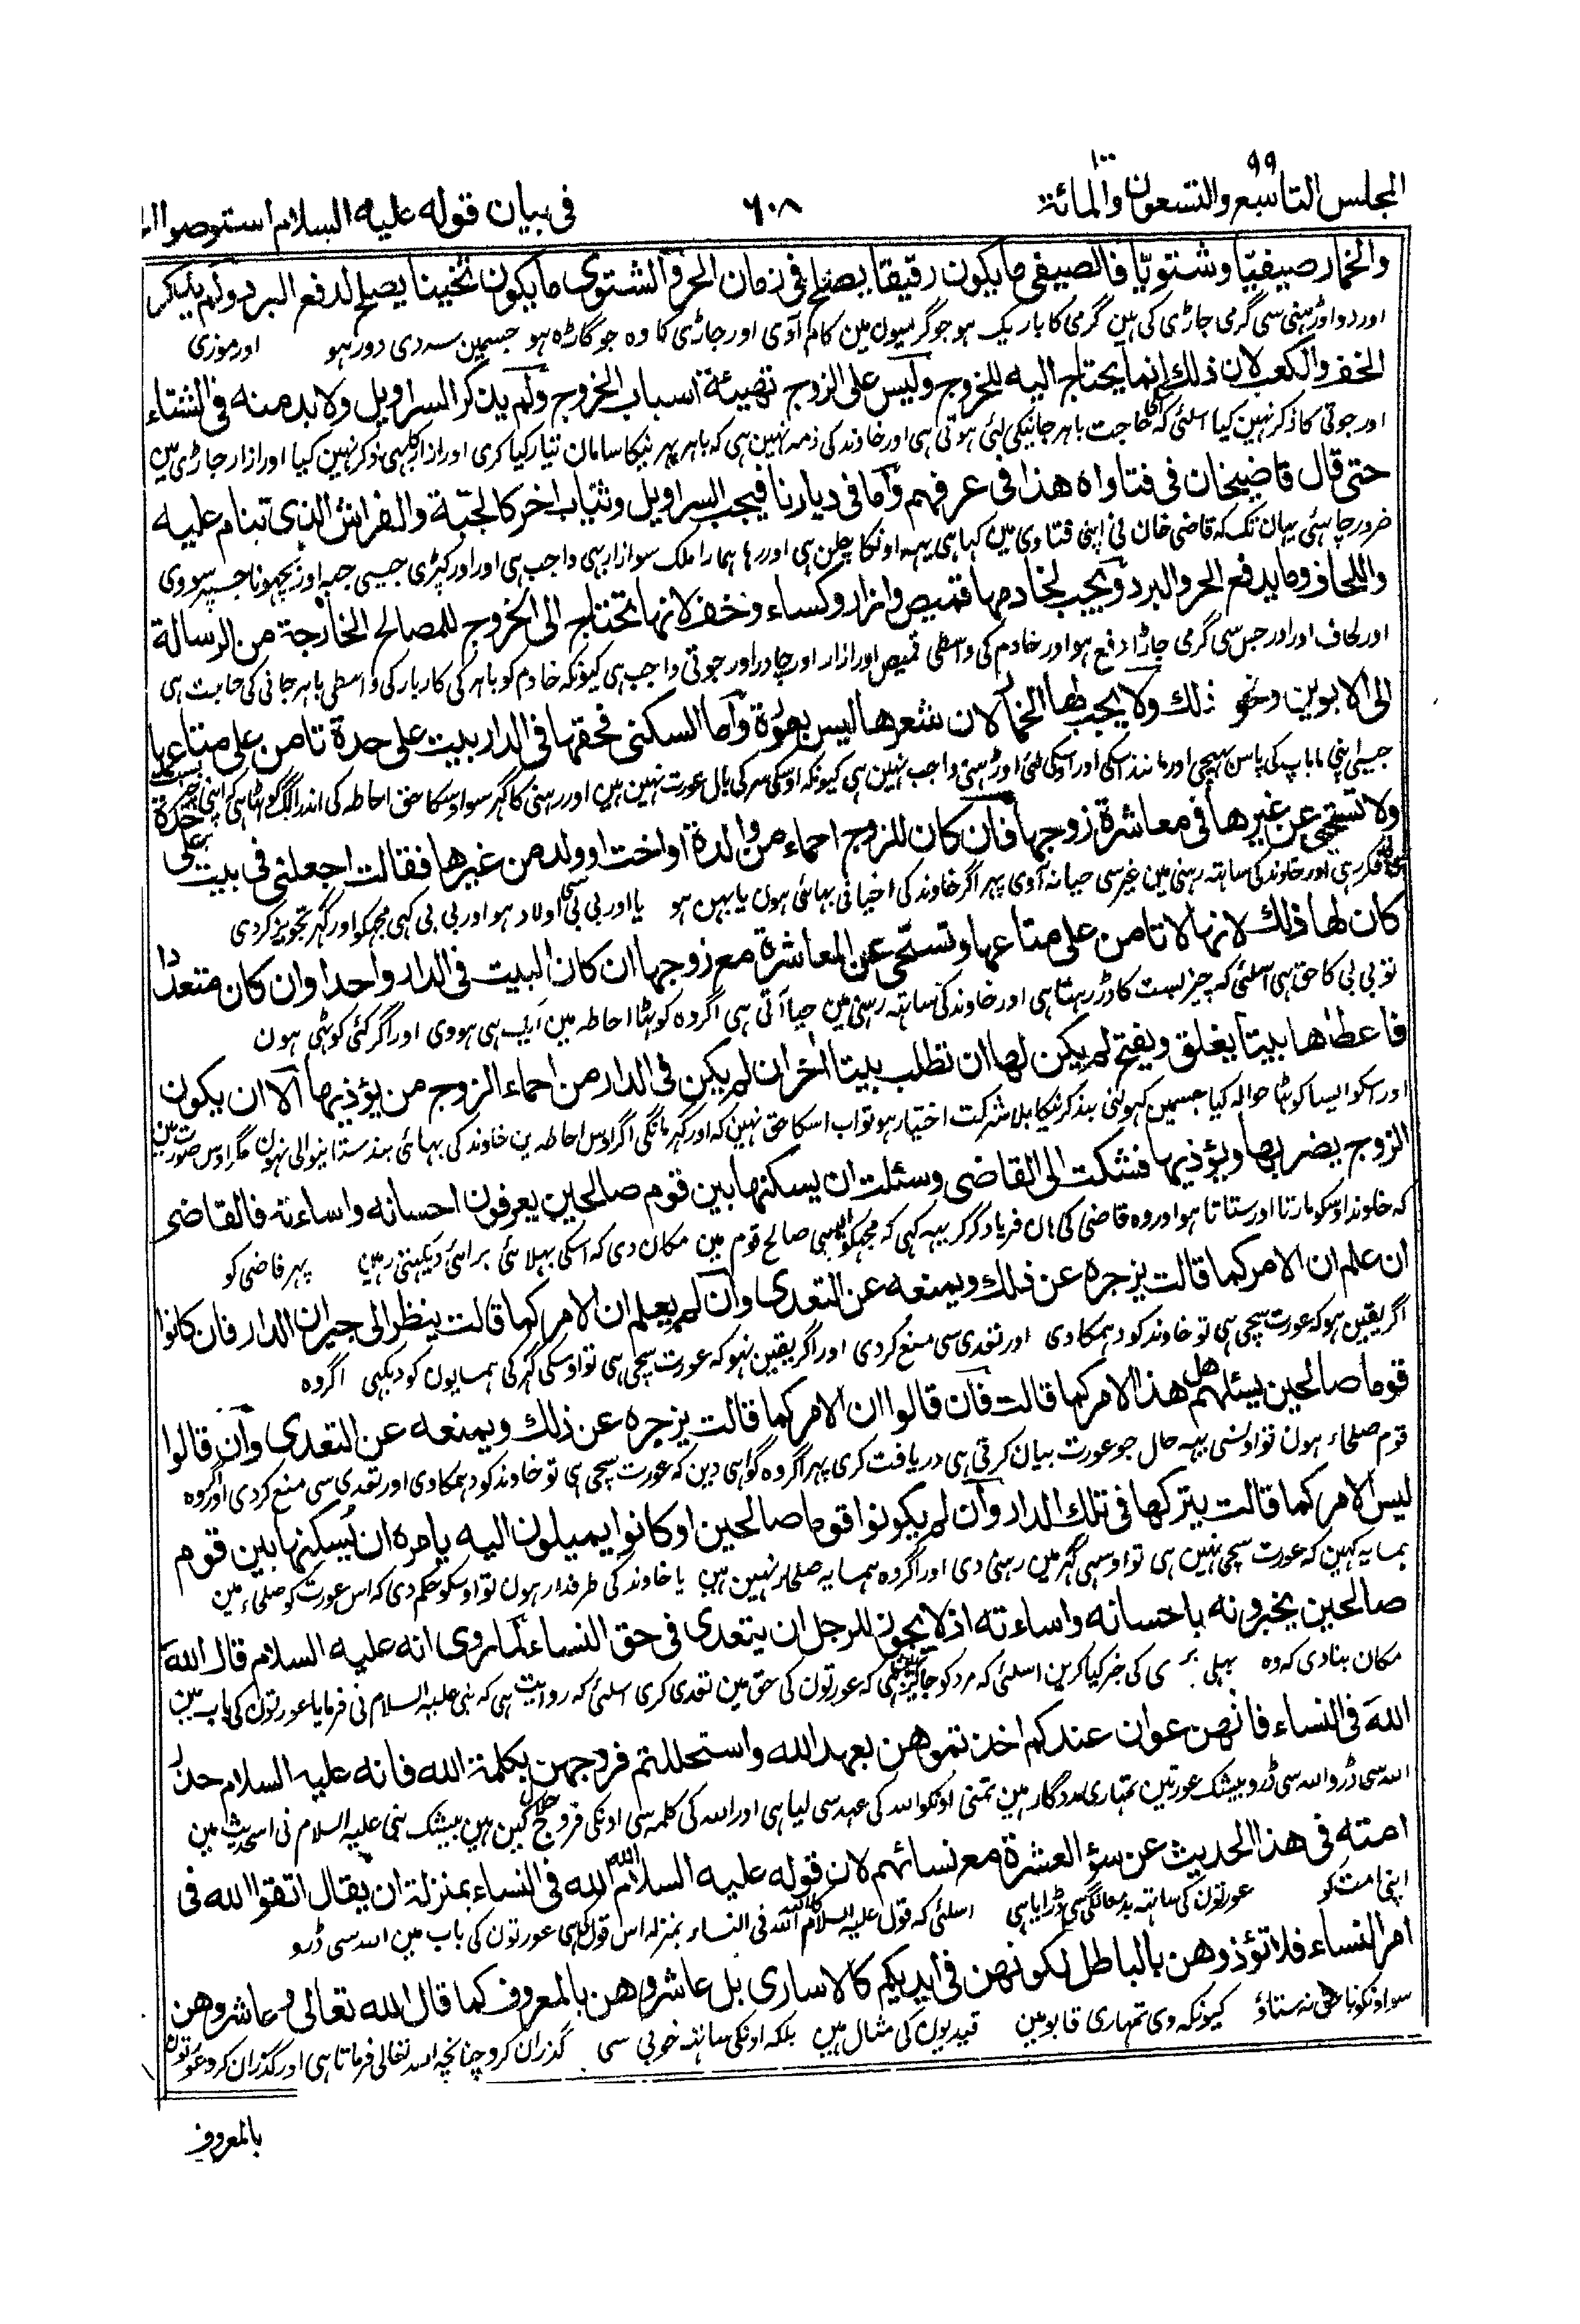 المجلس التاسع والتسعون والمائة ۹۹ ۱۰۰
٦٠٨
فى بيان قوله عليه السلام استوصوا
والخمار صيفيّا وشتويّا فالصيفى ما يكون رقيقا يصلح فى زمان الحر والشتوى ما يكون ثخينا يصلح لدفع البرد ولم يذكر
اور دو اوڑہنی سی گرمی جاڑی کی ہین گرمی کا باریک ہو جو گرمیون مین کام آوی اور جاڑی کا وہ جو گاڑہ ہو جسمین سردی دور ہو اور موزی
الخف والكعب لان ذلك انما يحتاج اليه للخروج وليس على الزوج تهيئة اسباب الخروج ولم يذكر السراويل ولا بد منه فى الشتاء
اور جوتی کا ذکر نہین کیا اسلئی کہ حاجت باہر جانیکی لئی ہوتی ہی اور خاوند کی ذمہ نہین ہی کہ باہر پہرنیکا سامان تیار کیا کری اور ازار کا بہی ذکر نہین کیا اور ازار جاڑی مین
حتى قال قاضيخان فى فتاواه هذا فى عرفهم واما فى ديارنا فيجب السراويل وثياب اخر كالجبة والفراش الذى تنام عليه
ضرور چاہئی یہان تک کہ قاضی خان نی اپنی فتاوی مین کہا ہی یہہ اونکا چلن ہی اور رہا ہمارا ملک سو ازار بہی واجب ہی اور اور کپڑی جیسی جبہ اور بچہونا جسپر سووی
واللحاف وما يدفع الحر والبرد ويجب لخادمها قميص وازار وكساء وخف لانها تحتاج الى الخروج للمصالح الخارجة من الرسالة
اور لحاف اور اور جس سی گرمی جاڑا دفع ہو اور خادم کی واسطی قمیص اور ازار اور چادر اور جوتی واجب ہی کیونکہ خادم کو باہر کی کاربار کی واسطی باہر جانی کی حاجت ہی
الى الابوين ونحو ذلك ولا يجب لها الخمار لان شعرها ليس بعورة واما السكنى فحقها فى الدار بيت على حدة تامن على متاعها
جیسی اپنی ماباپ کی پاس بہیجی اور مانند اسکی اور اوسکی لئی اوڑہنی واجب نہین ہی کیونکہ اوسکی سر کی بال عورت نہین ہین اور رہنی کا گہر سو اوسکا حق احاطہ کی اندر الگ کوٹہا ہی کہ اپنی چیز
ولا تستحى عن غيرها فى معاشرة زوجها فان كان للزوج احماء من والدة او اخت او ولد من غيرها فقالت اجعلنى فى بيت على حدة
فکر رہی اور خاوند کی ساتہہ رہنی مین غیر سی حیا نہ آوی پہر اگر خاوند کی اخیافی بہائی ہون یا بہن ہو یا اور بی بی کی اولاد ہو اور بی بی کہی مجہکو اور گہر تجویز کر دی
كان لها ذلك لانها لا تامن على متاعها وتستحى عن المعاشرة مع زوجها ان كان البيت فى الدار واحدا وان كان متعددا
تو بی بی کا حق ہی اسلئی کہ چیز بست کا ڈر رہتا ہی اور خاوند کی ساتہہ رہنی مین حیا آتی ہی اگر وہ کوٹہا احاطہ مین ایک ہی ہووی اور اگر کئی کوٹہی ہون
فاعطاها بيتا يغلق ويفتح لم يكن لها ان تطلب بيتا اخر ان لم يكن فى الدار من احماء الزوج من يؤذيها الا ان يكون
اور اسکو ایسا کوٹہا حوالہ کیا جسمین کہولنی بند کرنیکا بلا شرکت اختیار ہو تو اب اسکا حق نہین کہ اور گہر مانگی اگر اوس احاطہ مین خاوند کی بہائی بند ستانیوالی نہون مگر اوس صورت مین
الزوج يضربها ويؤذيها فشكت الى القاضى وسئلت ان يسكنها بين قوم صالحين يعرفون احسانه واساءته فالقاضى
کہ خاوند اوسکو مارتا اور ستاتا ہو اور وہ قاضی کی ہان فریاد کر کر یہہ کہی کہ مجہکو ایسی صالح قوم مین مکان دی کہ اسکی بہلائی برائی دیکہتی رہین پہر قاضی کو
ان علم ان الامر كما قالت يزجره عن ذلك ويمنعه عن التعدى وان لم يعلم ان الامر كما قالت ينظر الى جيران الدار فان كانوا
اگر یقین ہو کہ عورت سچی ہی تو خاوند کو دہمکا دی اور تعدی سی منع کر دی اور اگر یقین نہو کہ عورت سچی ہی تو اوسکی گہر کی ہمسایون کو دیکہی اگر وہ
قوما صالحين يسئلهم هل هذا الامر كما قالت فان قالوا ان الامر كما قالت يزجره عن ذلك ويمنعه عن التعدى وان قالوا
قوم صلحاء ہون تو اونسی یہہ حال جو عورت بیان کرتی ہی دریافت کری پہر اگر وہ گواہی دین کہ عورت سچی ہی تو خاوند کو دہمکا دی اور تعدی سی منع کر دی اور اگر وہ
ليس الامر كما قالت يتركها فى تلك الدار وان لم يكونوا قوما صالحين او كانوا يميلون اليه يامره ان يسكنها بين قوم
ہمسایہ کہین کہ عورت سچی نہین ہی تو اوسی گہر مین رہنی دی اور اگر وہ ہمسایہ صلحاء نہین ہین یا خاوند کی طرفدار ہون تو اوسکو حکم دی کہ اس عورت کو صلحاء مین
صالحين يخبرونه باحسانه واساءته اذ لا يجوز للرجل ان يتعدى فى حق النساء لما روى انه عليه السلام قال الله
مکان بنا دی کہ وہ بہلی بر ی کی خبر کیا کرین اسلئی کہ مرد کو جائز نہین ہی کہ عورتون کی حق مین تعدی کری اسلئی کہ روایت ہی کہ نبی علیہ السلام نی فرمایا عورتون کی باب مین
الله فى النساء فانهن عوان عندكم اخذتموهن بعهد الله واستحللتم فروجهن بكلمة الله فانه عليه السلام حذر
اللہ سی ڈرو اللہ سی ڈرو بیشک عورتین تمہاری مددگار ہین تمنی اونکو اللہ کی عہد سی لیا ہی اور اللہ کی کلمہ سی اونکی فروج حلال کین ہین بیشک نبی علیہ السلام نی اس حدیث مین
امته فى هذا الحديث عن سؤ العشرة مع نسائهم لان قوله عليه السلام الله الله فى النساء بمنزلة ان يقال اتقوا الله فى
اپنی امت کو عورتون کی ساتہہ بدمعاملگی سی ڈرایا ہی اسلئی کہ قول علیہ السلام کا اللہ اللہ فی النساء بمنزلہ اس قول کی ہی عورتون کی باب مین اللہ سی ڈرو
امر النساء فلا تؤذوهن بالباطل لكونهن فى ايديكم كالاسارى بل عاشروهن بالمعروف كما قال الله تعالى وعاشروهن
سو اونکو ناحق نہ ستاؤ کیونکہ وی تمہاری قابو مین قیدیون کی مثال ہین بلکہ اونکی ساتہہ خوبی سی گذران کرو چنانچہ اللہ تعالی فرماتا ہی اور گذران کرو عورتون
بالمعروف